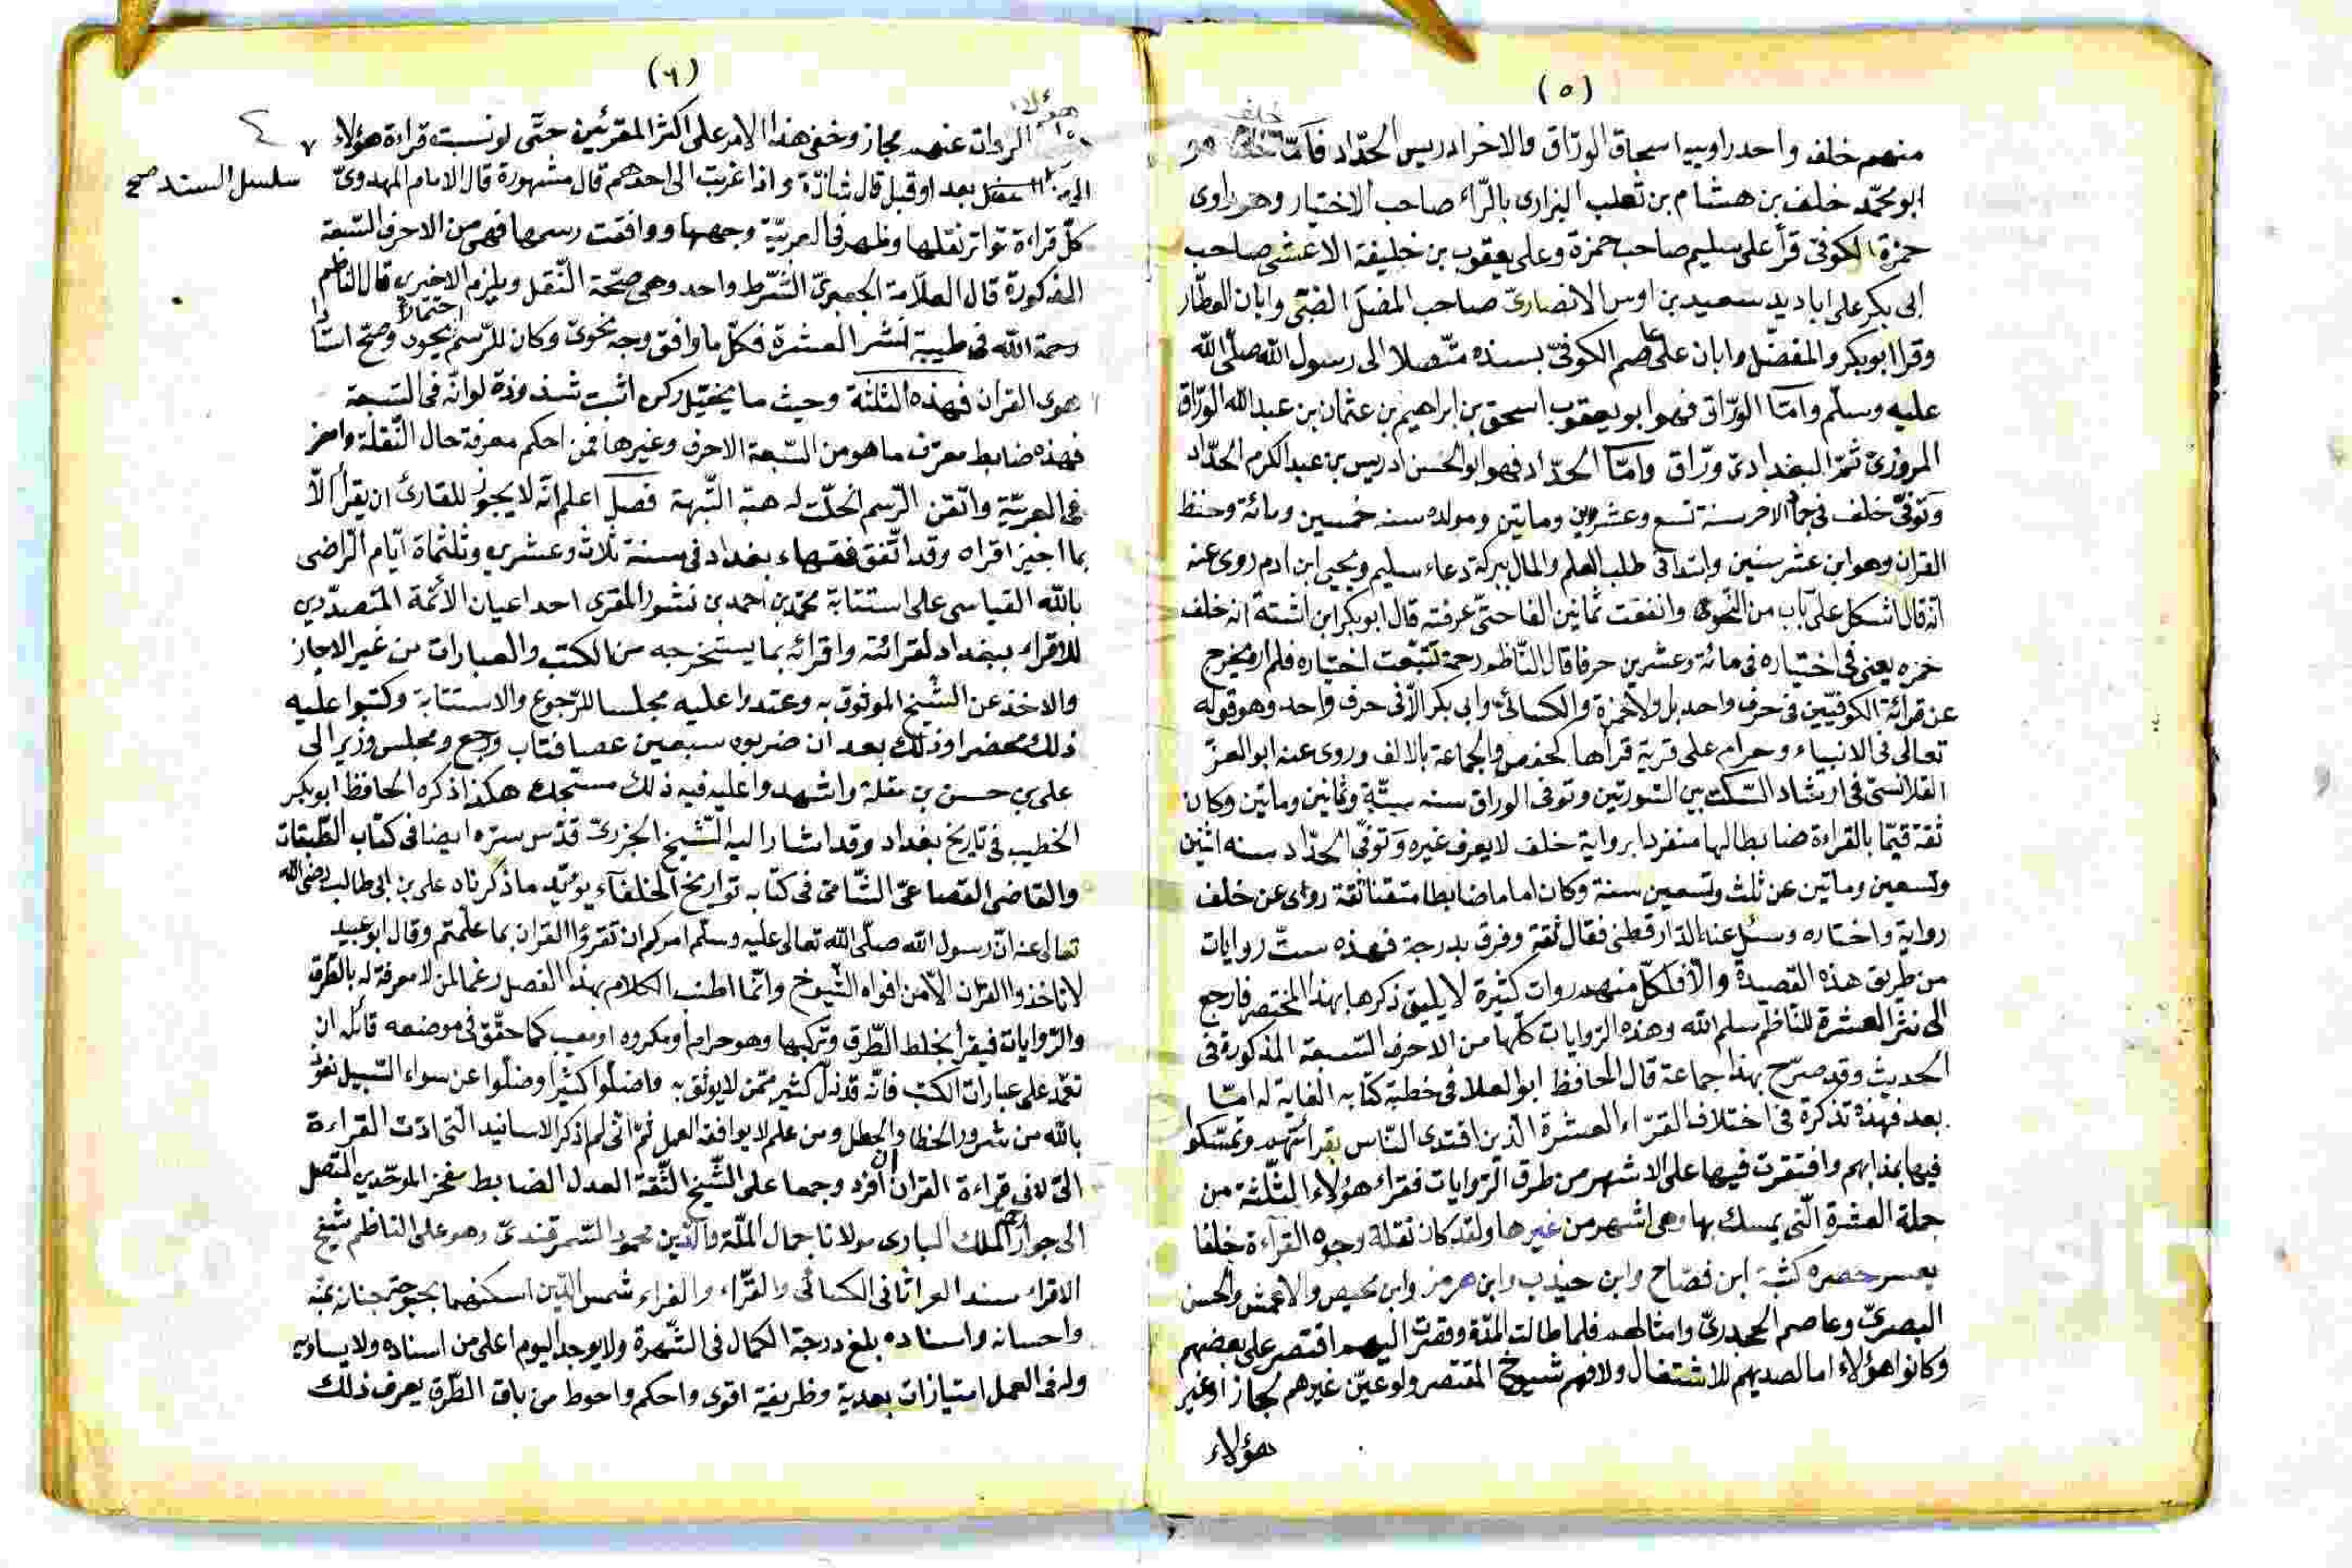 (٥)
منهم خلف واحد راوييه اسحاق الورّاق والاخر ادريس الحدّاد فامّا خلف هو
ابو محمّد خلف بن هشام بن ثعلب البزارى بالرّاء صاحب الاختيار وهو راوى
حمزة الكوفى قرأ على سليم صاحب حمزة وعلى يعقوب بن خليفة الاعشى صاحب
ابى بكر على ابا ديد سعيد بن اوس الانصارىّ صاحب المفضل الضبّى وابان العطّار
وقرا ابو بكر والمفضّل وابان على عاصم الكوفىّ بسنده متّصلا الى رسول الله صلّى الله
عليه وسلّم وامّا الورّاق فهو ابو يعقوب اسحق بن ابراهيم بن عثمان بن عبد الله الورّاق
المروزىّ ثمّ البغدادىّ ورّاق وامّا الحدّاد فهو ابو الحسن ادريس بن عبد الكرم الحدّاد
وتوفّى خلف فى جماد الاخر سنة تسع وعشرين وماتين ومولده سنه خمسين ومائة وحفظ
القران وهو ابن عشر سنين وابتدا فى طلب العلم والمال ببركة دعاء سليم ويحيى ابن ادم روى عنه
انّه قال اشكل علىّ باب من النّحو وانفقت ثمانين الفا حتّى عرفته قال ابو بكر ابن اشتة انه خلف
حمزه يعنى فى اختياره فى مائة وعشرين حرفا قال النّاظم رحمه تتبّعت اختياره فلم اره يخرج
عن قرائة الكوفيّين فى حرف واحد بل ولا حمزة والكسائى وابى بكر الّا فى حرف واحد وهو قوله
تعالى فى الانبياء وحرام على قرية قراها كحفص والجماعة بالالف وروى عنه ابو العزّ
القلانسىّ فى ارشاد السّكت بين السّورتين وتوفى الوراق سنه ستّة وثمانين وماتين وكان
ثقة قيّما بالقراءة ضابطا لها منفردا برواية خلف لا يعرف غيره وتوفّى الحدّاد سنه اثنين
وتسعين وماتين عن ثلث وتسعين سنة وكان اماما ضابطا متقنا ثقة روى عن خلف
رواية واختاره وسئل عنه الدّارقطنى فقال ثقة وفرق بدرجة فهذه ستّ روايات
من طريق هذه القصيدة والّا فلكلّ منهم روات كثيرة لا يليق ذكرها بهذا المختصر فارجع
الى نشر العشرة للنّاظم سلم الله وهذه الرّوايات كلّها من الاحرف السّبعة المذكورة فى
الحديث وقد صرّح بهذا جماعة قال الحافظ ابو العلا فى خطبة كتابه الغاية له امّا
بعد فهذه تذكرة فى اختلاف القرّاء العشرة الّذين اقتدى النّاس بقرائتهم وتمسّكوا
فيها بمذابهم واقتقرت فيها على الاشهر من طرق الرّوايات فقراء هؤلاء الثّلثة من
جملة العشرة الّتى يمسك بها وهى اشهر من غيرها ولقد كان نقلة وجوه القراءة خلقا
يعسر حصره كشبة ابن نصّاح وابن جندب وابن هرمز وابن محيص والاعمش والحسن
البصرىّ وعاصم الجحدرىّ وامثالهم فلما طالت المدّة وقصرت الهمم اقتصر على بعضهم
وكانوا هؤلاء اما لصديهم للاشتغال ولا فهم شيوخ المقتصر ولو عيّن غيرهم لجاز او غير
هؤلاء
(٦)
هؤلاء
الروات عنهم مجاز وخفى هذا الامر على اكثر المقرئين حتّى لو نسبت قراءة هؤلاء
بعد او قبل قال شاذّة واذا غربت الى احدهم قال مشهورة قال الامام المهدوىّ
سلسل السند صح
كلّ قراءة تواتر نقلها وظهر فى العربيّة وجهها ووافقت رسمها فهى من الاحرف السّبعة
المذكورة قال العلاّمة الجعبرىّ الشّرط واحد وهى صحّة النّقل ويلزم الاخيرى قال النّاظم
رحمة الله فى طيبة نشر العشرة فكلّ ما وافق وجه نحوىّ وكان للرّسم احتمالا يحود وصحّ اسنادا
هوى القران فهذه الثلثة وحيث ما يختلّ ركن اثبت شذوذة لو انّه فى السّبعة
فهذه ضابط معرف ما هو من السّبعة الاحرف وغيرها فمن احكم معرفة حال النّقلة وامعن
فى العربيّة واتّقن الرّسم انحلّت له هبة الشّبهة فصل اعلم انّه لا يجوز للقارئ ان يقرأ الّا
بما اخيز اقراه وقد اتّفق فقهاء بغداد فى سنة ثلاث وعشرين وثلثماة ايّام الرّاضى
بالله القياسى على استتابة محمّد بن احمد بن نشور المقرى احد اعيان الأئمة المتصدّرين
للاقراء ببغداد لقرائته واقرائه بما يستخرجه من الكتب والعبارات من غير الاجاز
والاخذ عن الشّيخ الموثوق به وعقدوا عليه مجلسا للرّجوع والاستتابة وكتبوا عليه
ذلك محضرا وذلك بعد ان ضربوه سبعين عصا فتاب ورجع ومجلس وزير الى
على بن حسن بن مقلة واشهدوا عليه فيه ذلك مستجدّه هكذا ذكره الحافظ ابو بكر
الخطيب فى تاريخ بغداد وقد اشار اليه الشّيخ الجزرىّ قدّس سرّه ايضا فى كتاب الطّبقات
والقاضى القضاعىّ الشّامى فى كتابه تواريخ الخلفاء يؤيّد ما ذكرناه على بن ابى طالب رضى الله
تعالى عنه انّ رسول الله صلّى الله تعالى عليه وسلّم امركم ان تقرؤا القران بما علّمتم وقال ابو عبيد
لا تاخذوا القران الّا من افواه الشّيوخ وانّما اطنب الكلام بهذا الفصل رغما لمن لا معرفة له بالطّرق
والرّوايات فيقرأ بخلط الطّرق وتركيبها وهو حرام او مكروه او معيب كما حقّق فى موضعه فاياك ان
تعمد على عبارات الكتب فانّه قد زلّ كثير ممّن لا يوثق به واضلّوا كثيرا وضلّوا عن سواء السّبيل نعوذ
بالله من شرور الخطا والخطل ومن علم لا يوافقه العمل ثمّ انّى لم اذكر الاسانيد الّتى ادّت القراءة
الىّ لانى قراءة القران افرد وجمعا على الشّيخ الثّقة العدل الضابط مفخر الموحّدين المتّصل
الى جوار الملك البارى مولانا جمال الملّة والدّين محمود السّمرقندىّ وهو على الناظم شيخ
الاقراء سند العراثا فى الكسائى والقرّاء والفراء شمس الدّين اسكنهما بحبوحة جنانه بمنّه
واحسانه واسناده بلغ درجة الكمال فى الشّهرة ولا يوجد اليوم اعلى من اسناده ولا يساويه
وله فى العمل امتيازات بعدية وظريفية اقوى واحكم واحوط من باق الطّرق يعرف ذلك